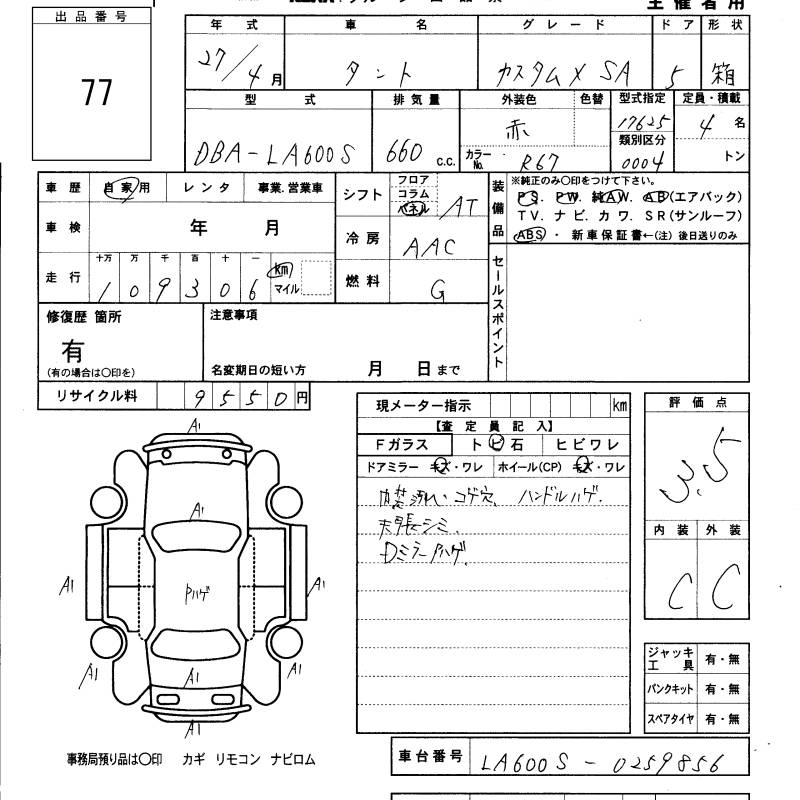 主催者用
出品番号
77
年式 車名 グレード ドア 形状
27/4月 タント カスタムX SA 5 箱
型式 排気量 外装色 色替 型式指定 定員・積載
DBA-LA600S 660 C.C. 赤 17625 4 名
カラーNo. R67 類別区分 0004 トン
車歴 自家用 レンタ 事業.営業車
シフト フロア コラム パネル AT
装備品 ※純正のみ〇印をつけて下さい。
PS. PW. 純AW. AB(エアバック)
TV. ナビ. カワ. SR(サンルーフ)
ABS ・ 新車保証書←(注) 後日送りのみ
車検 年 月
冷房 AAC
走行 十万 万 千 百 十 一
109306 km マイル
燃料 G
セールスポイント
修復歴 箇所 注意事項
有
(有の場合は〇印を) 名変期日の短い方 月 日まで
リサイクル料 9550円
現メーター指示 km
【査定員記入】
Fガラス トビ石 ヒビワレ
ドアミラー キズ・ワレ ホイール(CP) キズ・ワレ
内装汚れ. コゲ穴. ハンドルハゲ.
天張シミ.
DミラーPハゲ.
評価点
3.5
内装 外装
C C
A1
A1
A1 Pハゲ A1
A1 A1 A1
A1
ジャッキ工具 有・無
パンクキット 有・無
スペアタイヤ 有・無
事務局預り品は〇印 カギ リモコン ナビロム
車台番号 LA600S-0259856